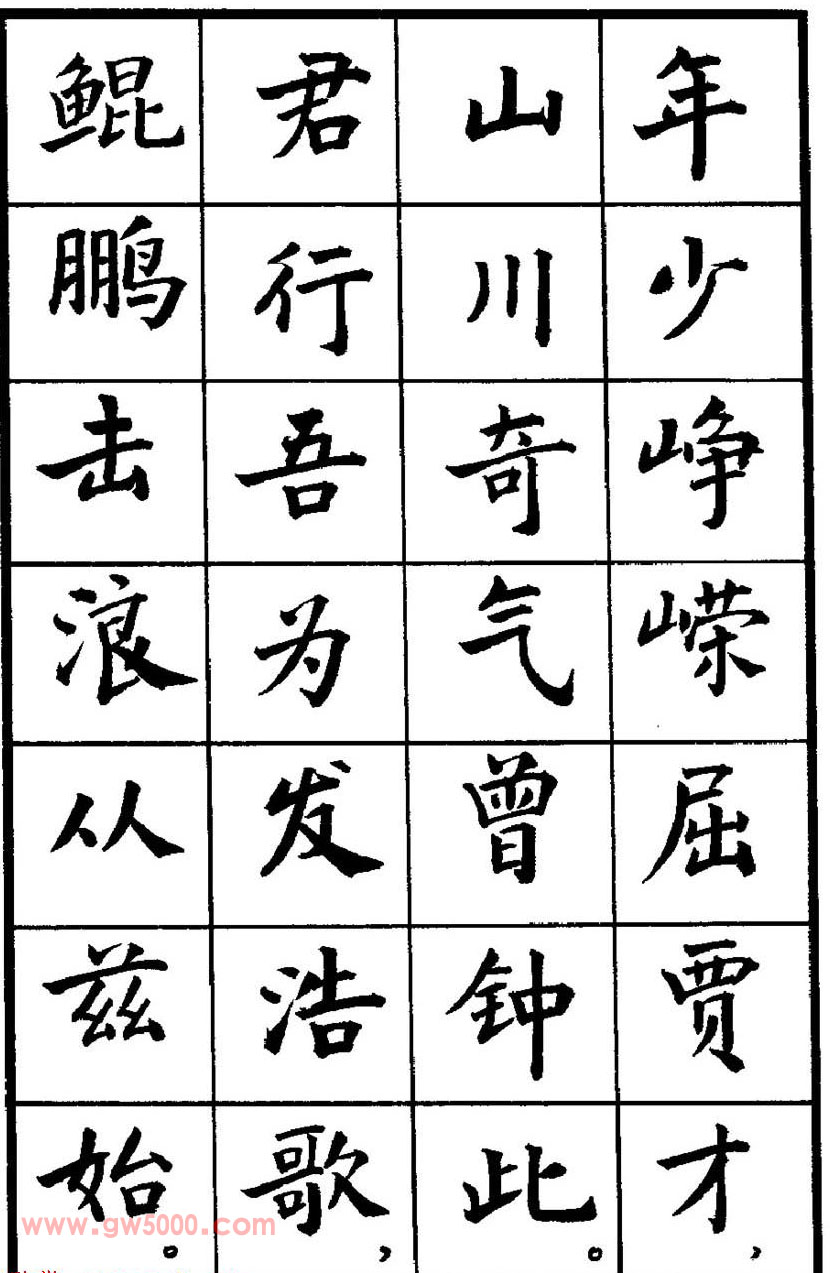 年少峥嵘屈贾才，
山川奇气曾钟此。
君行吾为发浩歌，
鲲鹏击浪从兹始。
www.gw5000.com